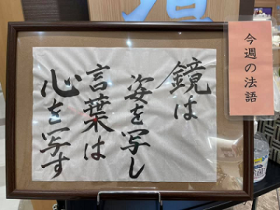 今週の法語
鏡は
姿を写し
言葉は
心を写す